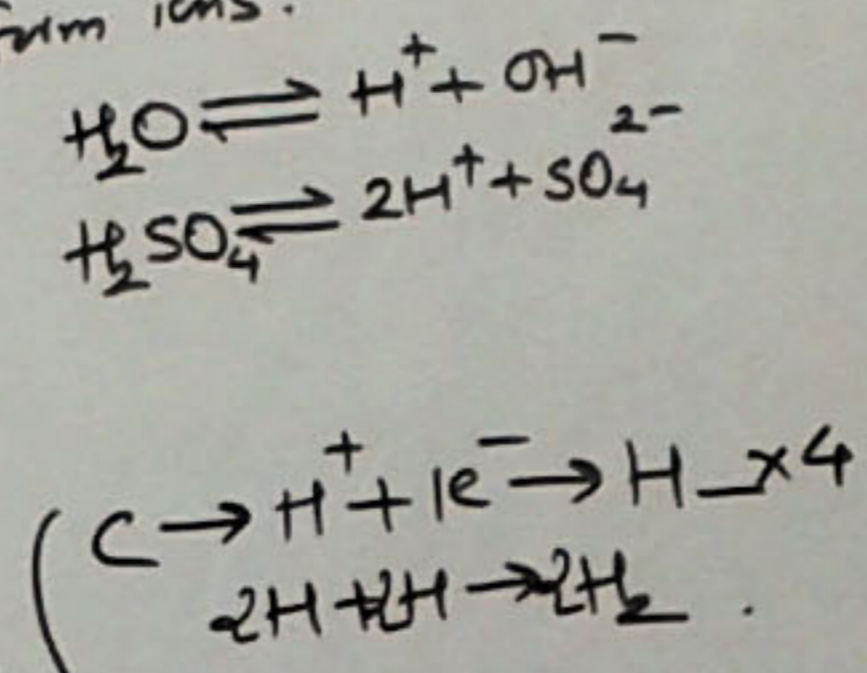 form ions.
H₂O ⇌ H⁺ + OH⁻
H₂SO₄ ⇌ 2H⁺ + SO₄²⁻
C → H⁺ + 1e⁻ → H _ x 4
2H + 2H → 2H₂ .